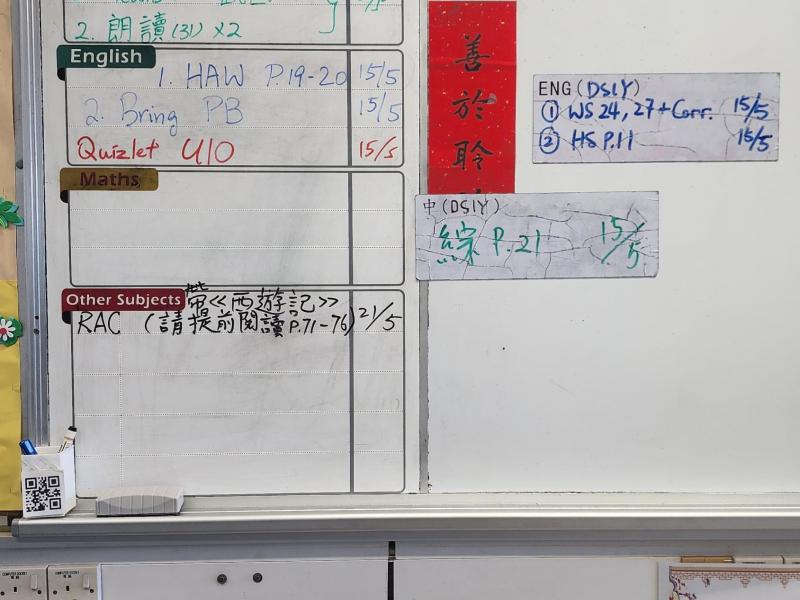 2. 朗讀(31) x2
English
1. HAW P.19-20 15/5
2. Bring PB 15/5
Quizlet U10 15/5
Maths
Other Subjects
帶<<西遊記>>
RAC (請提前閱讀P.71-76) 21/5
善於聆
ENG(DSLY)
① WS 24, 27 + Corr. 15/5
② HS P.11 15/5
中(DSLY)
綜 P.21 15/5